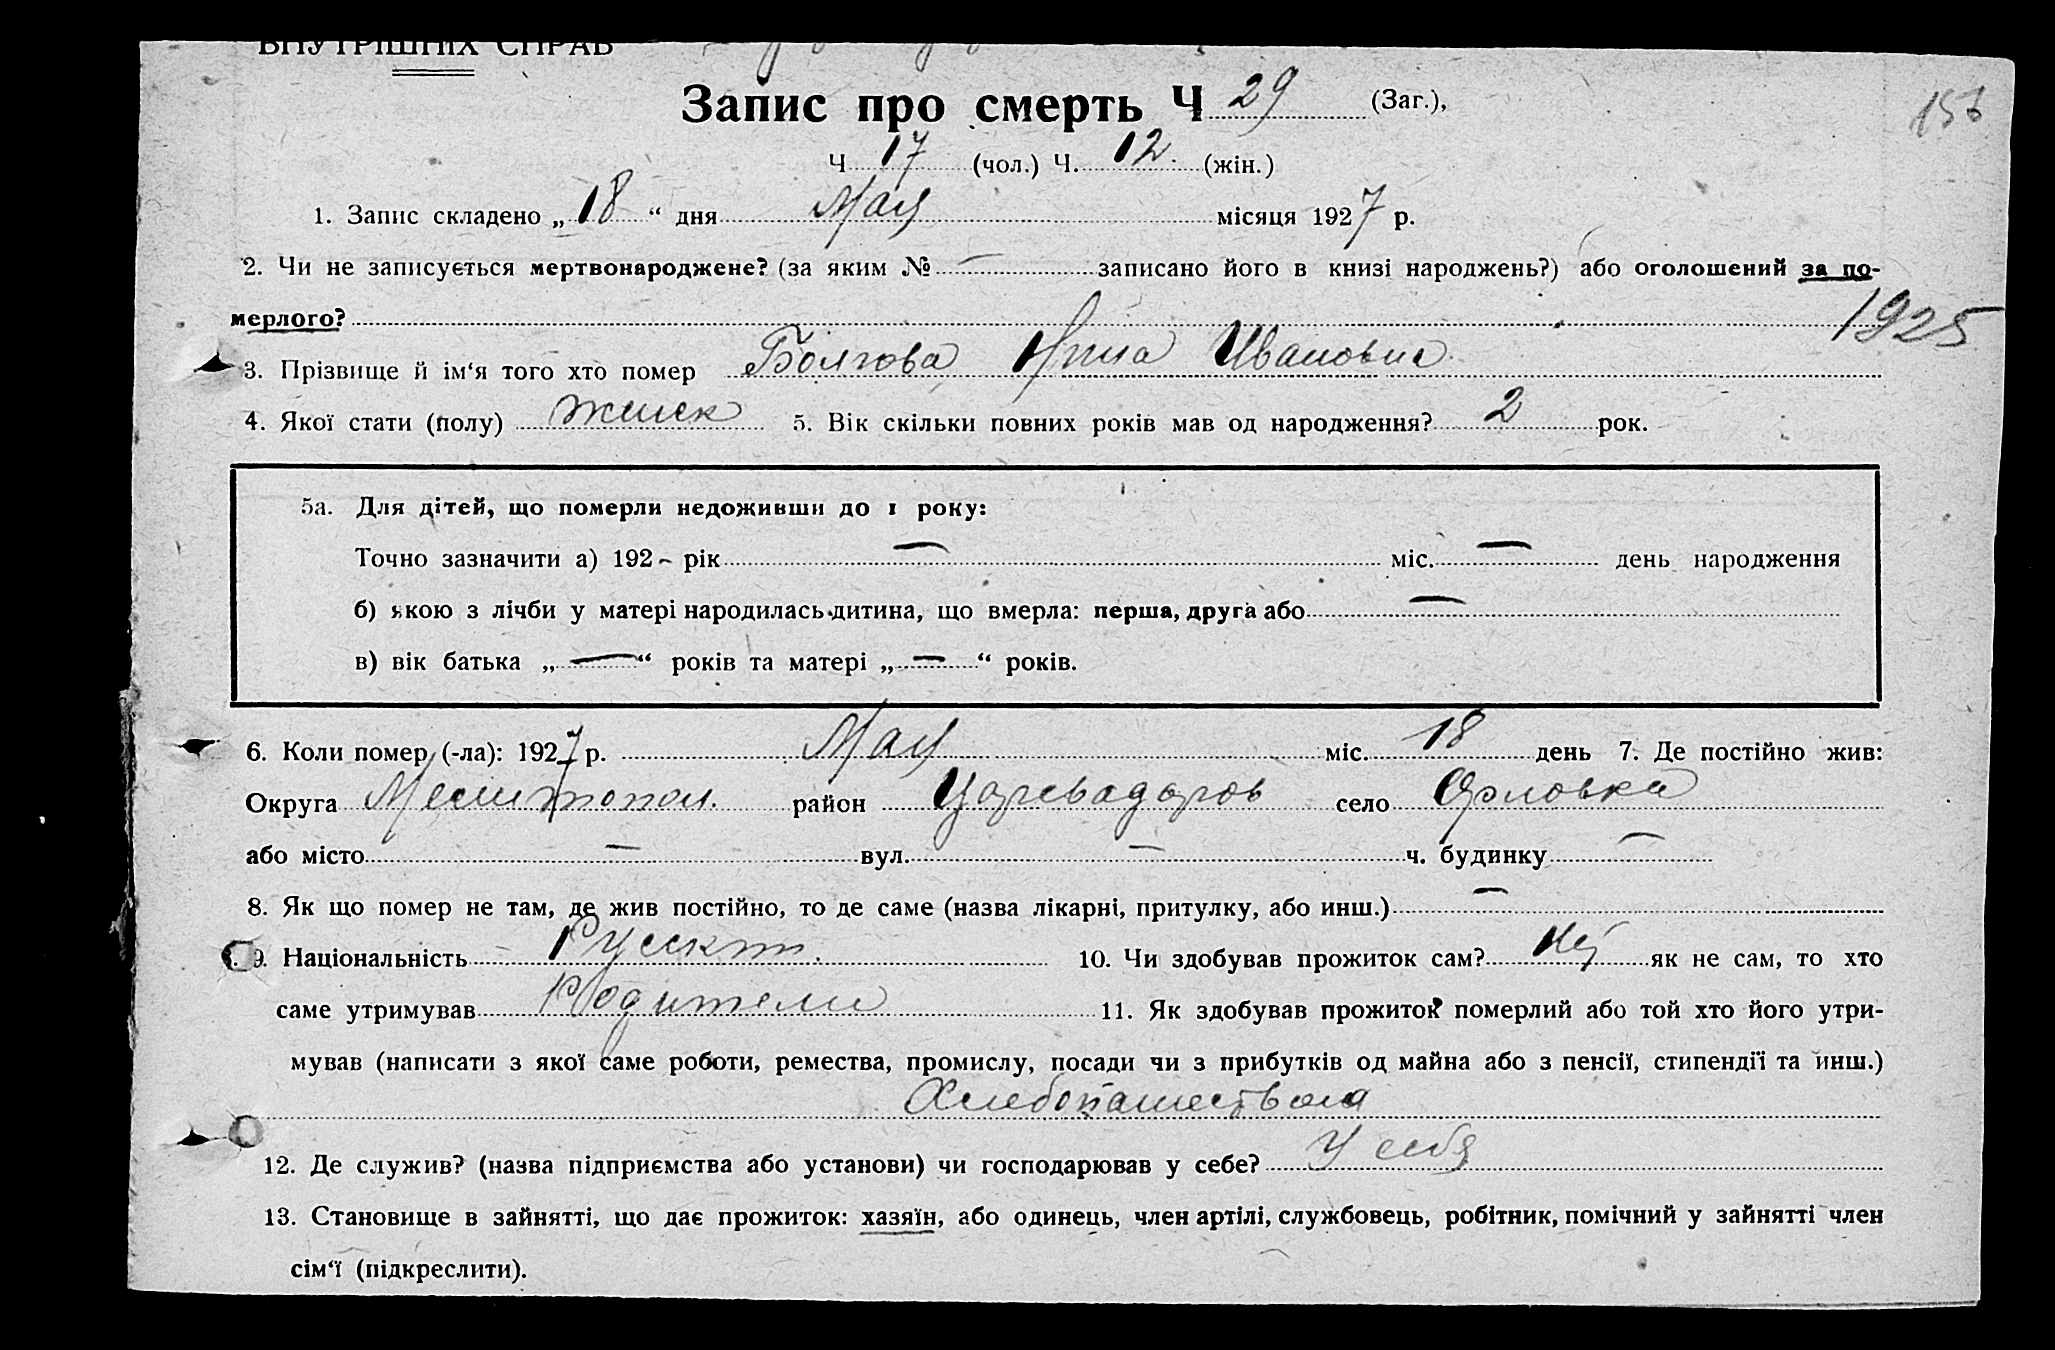 ВНУТРІШНІХ СПРАВ
Запис про смерть Ч 29 (Заг.),
156
Ч 17 (чол.) Ч. 12. (жін.)
1. Запис складено „ 18 “ дня Мая місяця 1927 р.
2. Чи не записується мертвонароджене? (за яким № — записано його в книзі народжень?) або оголошений за по-
мерлого?
1925
3. Прізвище й ім‘я того хто помер Болгова Нина Ивановна
4. Якої стати (полу) женск 5. Вік скільки повних років мав од народження? 2 рок.
5а. Для дітей, що померли недоживши до 1 року:
Точно зазначити а) 192 - рік — міс. — день народження
б) якою з лічби у матері народилась дитина, що вмерла: перша, друга або —
в) вік батька „ — “ років та матері „ — “ років.
6. Коли помер (-ла): 1927 р. Мая міс. 18 день 7. Де постійно жив:
Округа Мелитопол. район Царевадаров село Орловка
або місто — вул. — ч. будинку —
8. Як що помер не там, де жив постійно, то де саме (назва лікарні, притулку, або инш.) —
9. Національність 10. Чи здобував прожиток сам? як не сам, то хто
саме утримував Родители 11. Як здобував прожиток померлий або той хто його утри-
мував (написати з якої саме роботи, ремества, промислу, посади чи з прибутків од майна або з пенсії, стипендії та инш.)
Хлебопашеством
12. Де служив? (назва підприємства або установи) чи господарював у себе? У себя
13. Становище в зайнятті, що дає прожиток: хазяїн, або одинець, член артілі, службовець, робітник, помічний у зайнятті член
сім‘ї (підкреслити).